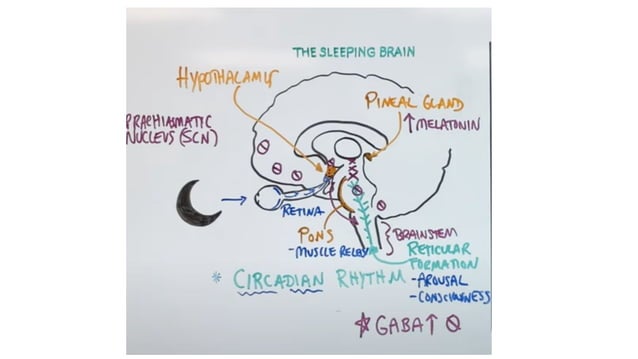 THE SLEEPING BRAIN
HYPOTHALAMUS
PINEAL GLAND
↑MELATONIN
PRACHIASMATIC
NUCLEUS (SCN)
RETINA
PONS
-MUSCLE RELAY
BRAINSTEM
RETICULAR
FORMATION
-AROUSAL
-CONSCIOUSNESS
* CIRCADIAN RHYTHM
☆GABA↑